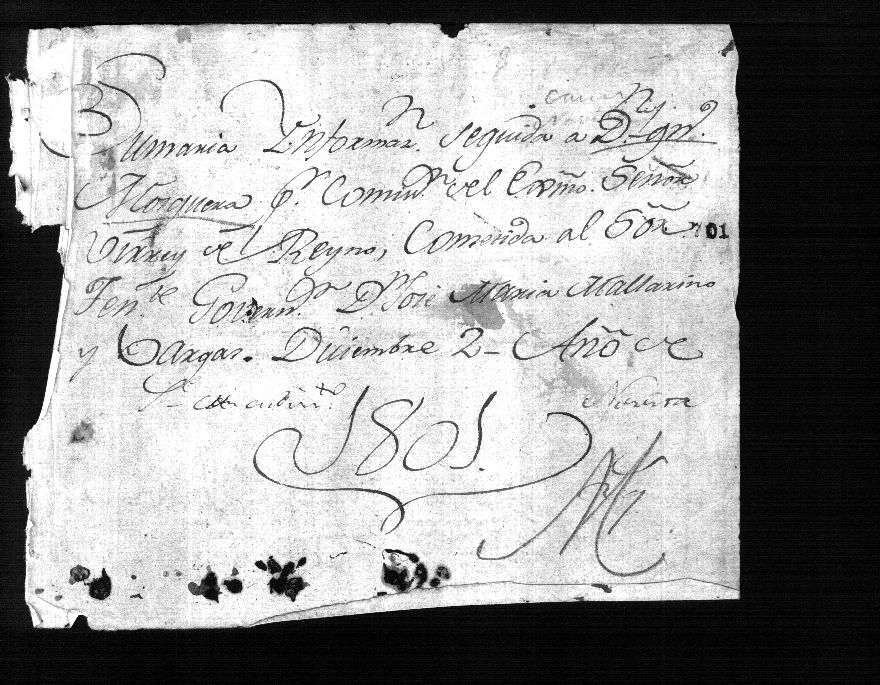 Sumaria Informaⁿ. seguida a Dⁿ. Ignº.
Mosquera pʳ. Comisⁿ. del Exmo. Señor
Virrey del Reyno, Cometida al Sor.
Tenᵗᵉ Governʳ. Dⁿ. José Maria Mallarino
y Vargas. Diciembre 2 - Año de
1801.
01